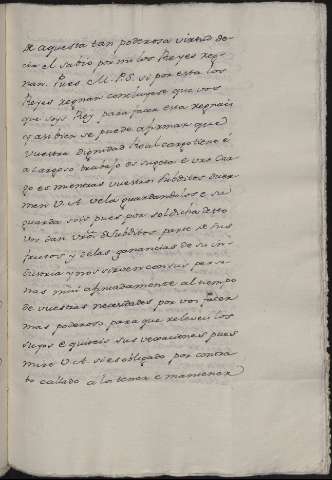 de aquesta tan poderosa virtud de-
cia el sabio por mi los Reyes reg-
nan. Pues M. P. S. si por esta los
Reyes regnan concluyese que vos
que soys Rey para facer esta regnais
y assi bien se puede afirmar que
vuestra dignidad Real cargo tiene é
a cargoso trabajo es sugeto e vro car
go es mientras vuestros subditos duer-
men V. A. vela guardandolos e su
guarda sois pues por soldada desto
vos dan vros subditos parte de sus
frutos y de las ganancias de su in-
dustria y vos sirven con sus perso-
nas mui afincadamente al tiempo
de vuestras necesidades por vos facer
mas poderoso para que releveis los
suyos e quiteis sus vexaciones pues
mire V. A. si es obligado por contra
to callado a lo tener e mantener